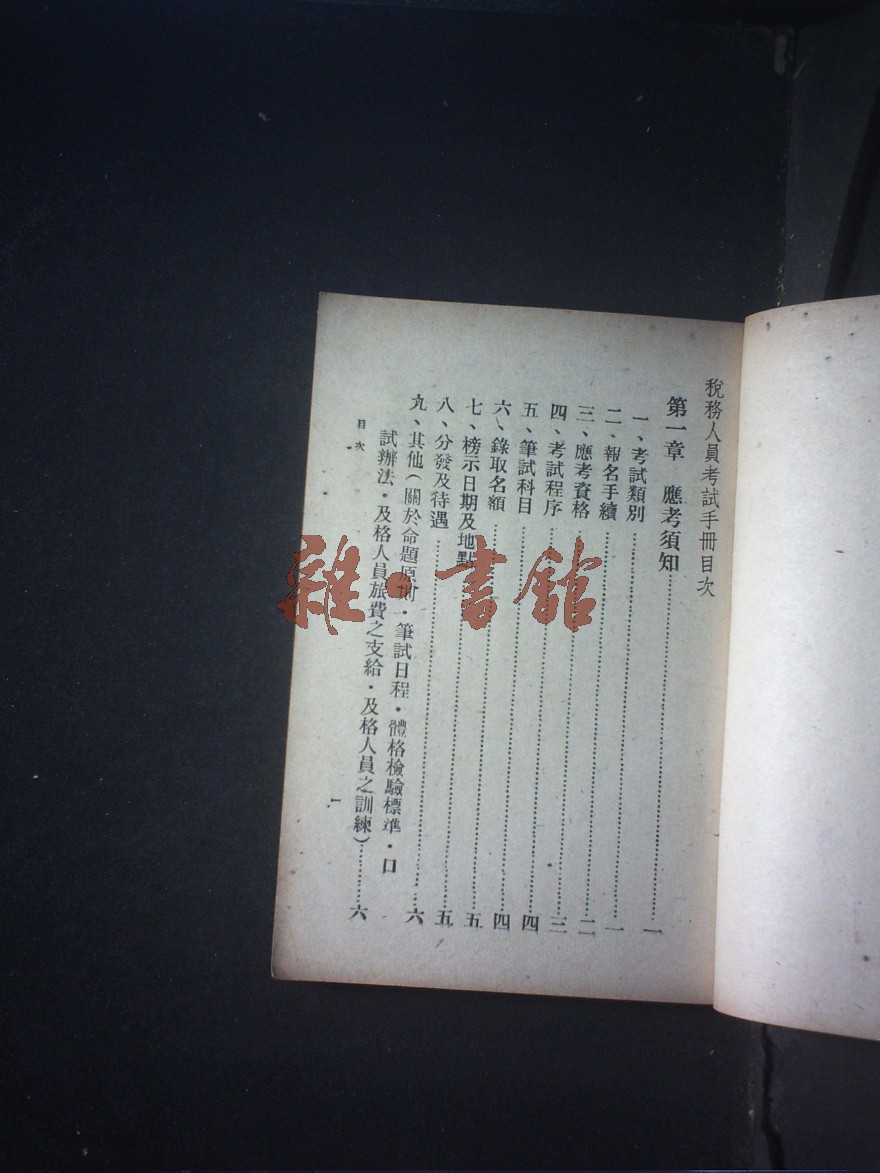 稅務人員考試手冊目次
第一章　應考須知……………一
一、考試類別……………一
二、報名手續……………二
三、應考資格……………三
四、考試程序……………四
五、筆試科目……………四
六、錄取名額……………五
七、榜示日期及地點……………五
八、分發及待遇……………六
九、其他（關於命題原則・筆試日程・體格檢驗標準・口
試辦法・及格人員旅費之支給・及格人員之訓練）……六
目次
一
雜・書館